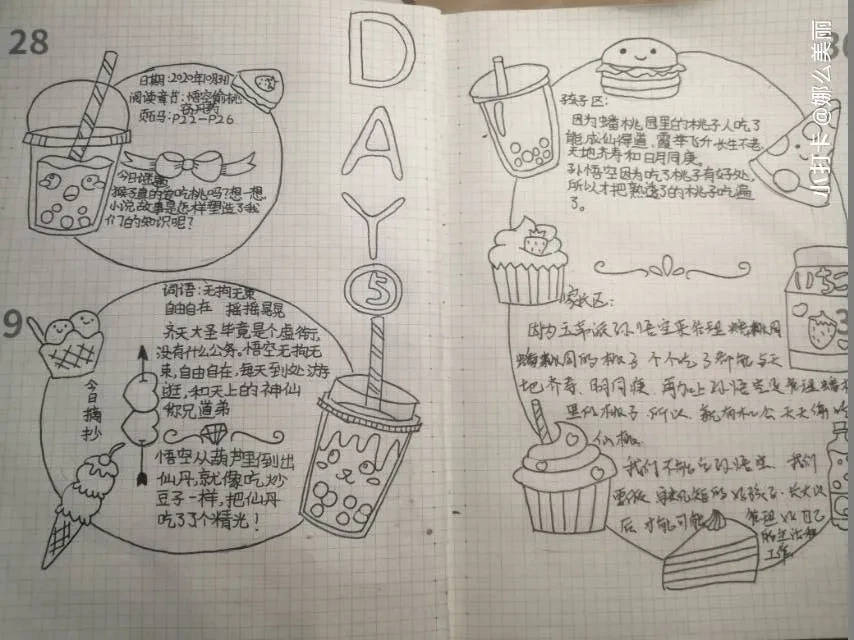 28
日期:2020年10月3日
阅读章节:悟空偷桃
窃丹药
页码:P22-P26
今日话题
猴子真的会吃桃吗?想一想,
小说故事是怎样塑造了我
们的知识呢?
DAY⑤
9
词语:无拘无束
自由自在 摇摇晃晃
齐天大圣毕竟是个虚衔,
没有什么公务。悟空无拘无
束,自由自在,每天到处游
逛,和天上的神仙
称兄道弟
今日摘抄
悟空从葫芦里倒出
仙丹,就像吃炒
豆子一样,把仙丹
吃了个精光!
孩子区:
因为蟠桃园里的桃子人吃了
能成仙得道,霞举飞升长生不老,
天地齐寿和日月同庚。
孙悟空因为吃了桃子有好处,
所以才把熟透了的桃子吃遍
了。
家长区:
因为玉帝派孙悟空来管理蟠桃园
蟠桃园的桃子个个吃了都能与天
地齐寿、日月同庚、再加上孙悟空是管理蟠桃
里的桃子 所以 就有机会天天偷吃
仙桃
我们不能学孙悟空 我们
要做 的好孩子 长大以
后才能 管理好自己
的生活和
工作
小打卡@娜么美丽